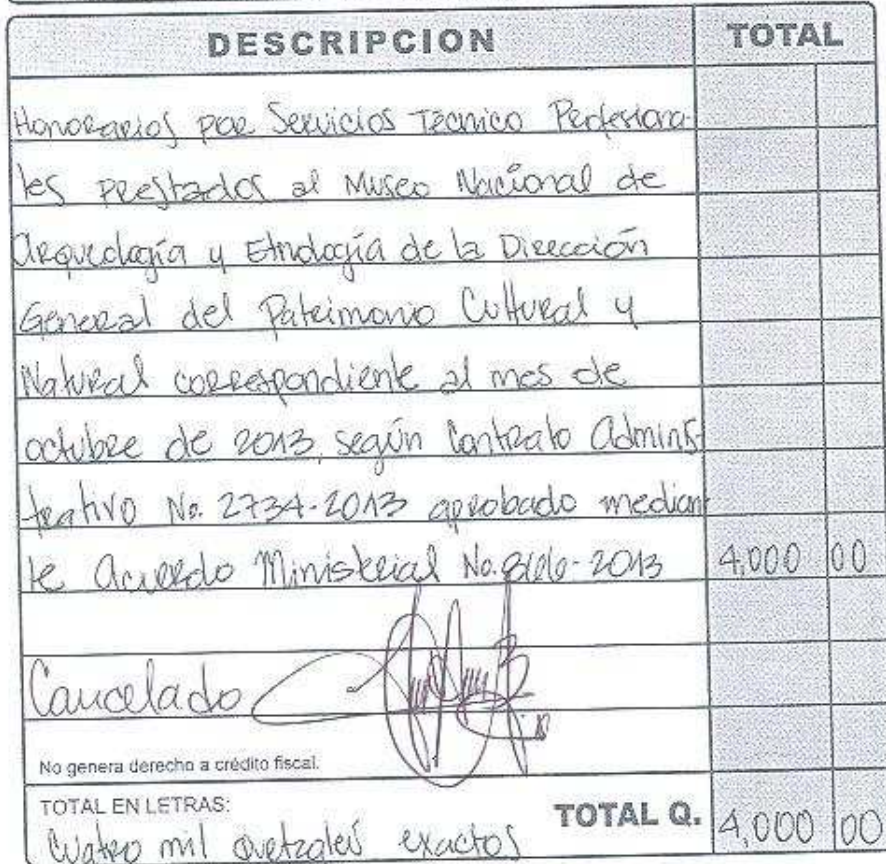 DESCRIPCION TOTAL
Honorarios por Servicios Técnico Profesiona-
les prestados al Museo Nacional de
Arqueología y Etnología de la Dirección
General del Patrimonio Cultural y
Natural correspondiente al mes de
octubre de 2013, según Contrato Adminis-
trativo No. 2734-2013 aprobado median-
te Acuerdo Ministerial No. 2013 4,000 00
Cancelado
No genera derecho a crédito fiscal.
TOTAL EN LETRAS:
Cuatro mil quetzales exactos TOTAL Q. 4,000 00